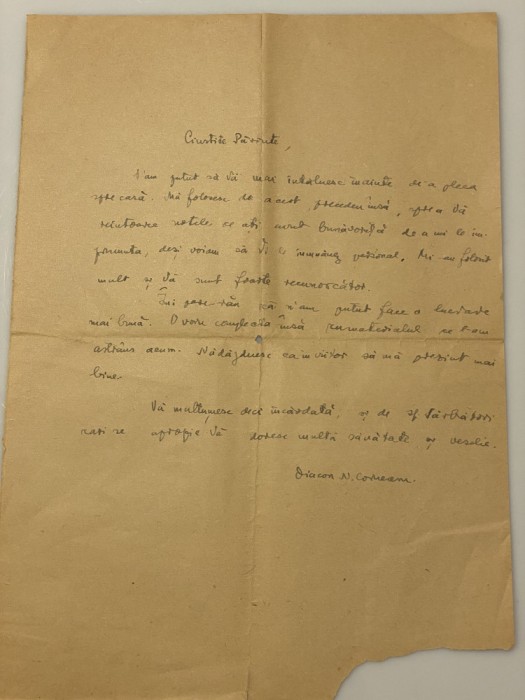 Cinstite Părinte,
N'am putut să Vă mai întâlnesc înainte de-a pleca
spre casă. Mă folosesc de acest precedent însă, spre a Vă
reintoarce notele ce ați avut bunăvoința de a mi le îm-
prumuta, deși voiam să Vi le înmânez personal. Mi-au folosit
mult și Vă sunt foarte recunoscător.
Îmi pare rău că n'am putut face o lucrare
mai bună. O voiu completa însă cu materialul ce l-am
astrâns acum. Nădăjduesc ca în viitor să mă prezint mai
bine.
Vă mulțumesc deci încăodată, și de Sf. Sărbători
cari se apropie Vă doresc multă sănătate și veselie.
Diacon N. Corneanu.